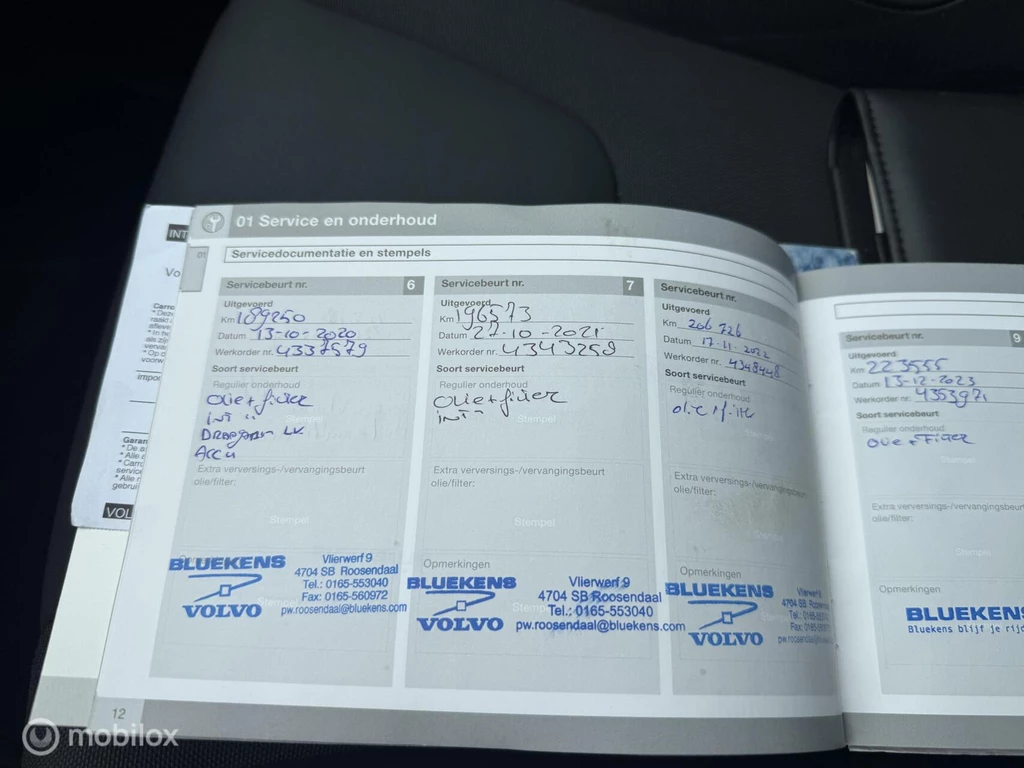 INT
Vo
VOL
01 Service en onderhoud
01
Servicedocumentatie en stempels
Servicebeurt nr. 6
Uitgevoerd
Km 189250
Datum 13-10-2020
Werkorder nr. 4337579
Soort servicebeurt
Regulier onderhoud
Olie + filter
INT "
Stempel
Accu
Extra verversings-/vervangingsbeurt
olie/filter:
Stempel
BLUEKENS
VOLVO
Vlierwerf 9
4704 SB Roosendaal
Tel.: 0165-553040
Fax: 0165-560972
pw.roosendaal@bluekens.com
12
Servicebeurt nr. 7
Uitgevoerd
Km 196573
Datum 27-10-2021
Werkorder nr. 4343259
Soort servicebeurt
Regulier onderhoud
Olie + filter
INT "
Stempel
Extra verversings-/vervangingsbeurt
olie/filter:
Stempel
Opmerkingen
BLUEKENS
VOLVO
Vlierwerf 9
4704 SB Roosendaal
Tel.: 0165-553040
pw.roosendaal@bluekens.com
Servicebeurt nr.
Uitgevoerd
Km 206726
Datum 17-11-2022
Werkorder nr. 4348448
Soort servicebeurt
Regulier onderhoud
olie + filter
Extra verversings-/vervangingsbeurt
olie/filter:
Stempel
Opmerkingen
BLUEKENS
VOLVO
Vlierwerf
4704 SB
Servicebeurt nr. 9
Uitgevoerd
Km 223555
Datum 13-12-2023
Werkorder nr. 4353971
Soort servicebeurt
Regulier onderhoud
Olie + Filter
Stempel
Extra verversings-/vervangingsbeurt
olie/filter:
Stempel
Opmerkingen
BLUEKENS
Bluekens blijf je rijd
mobilox